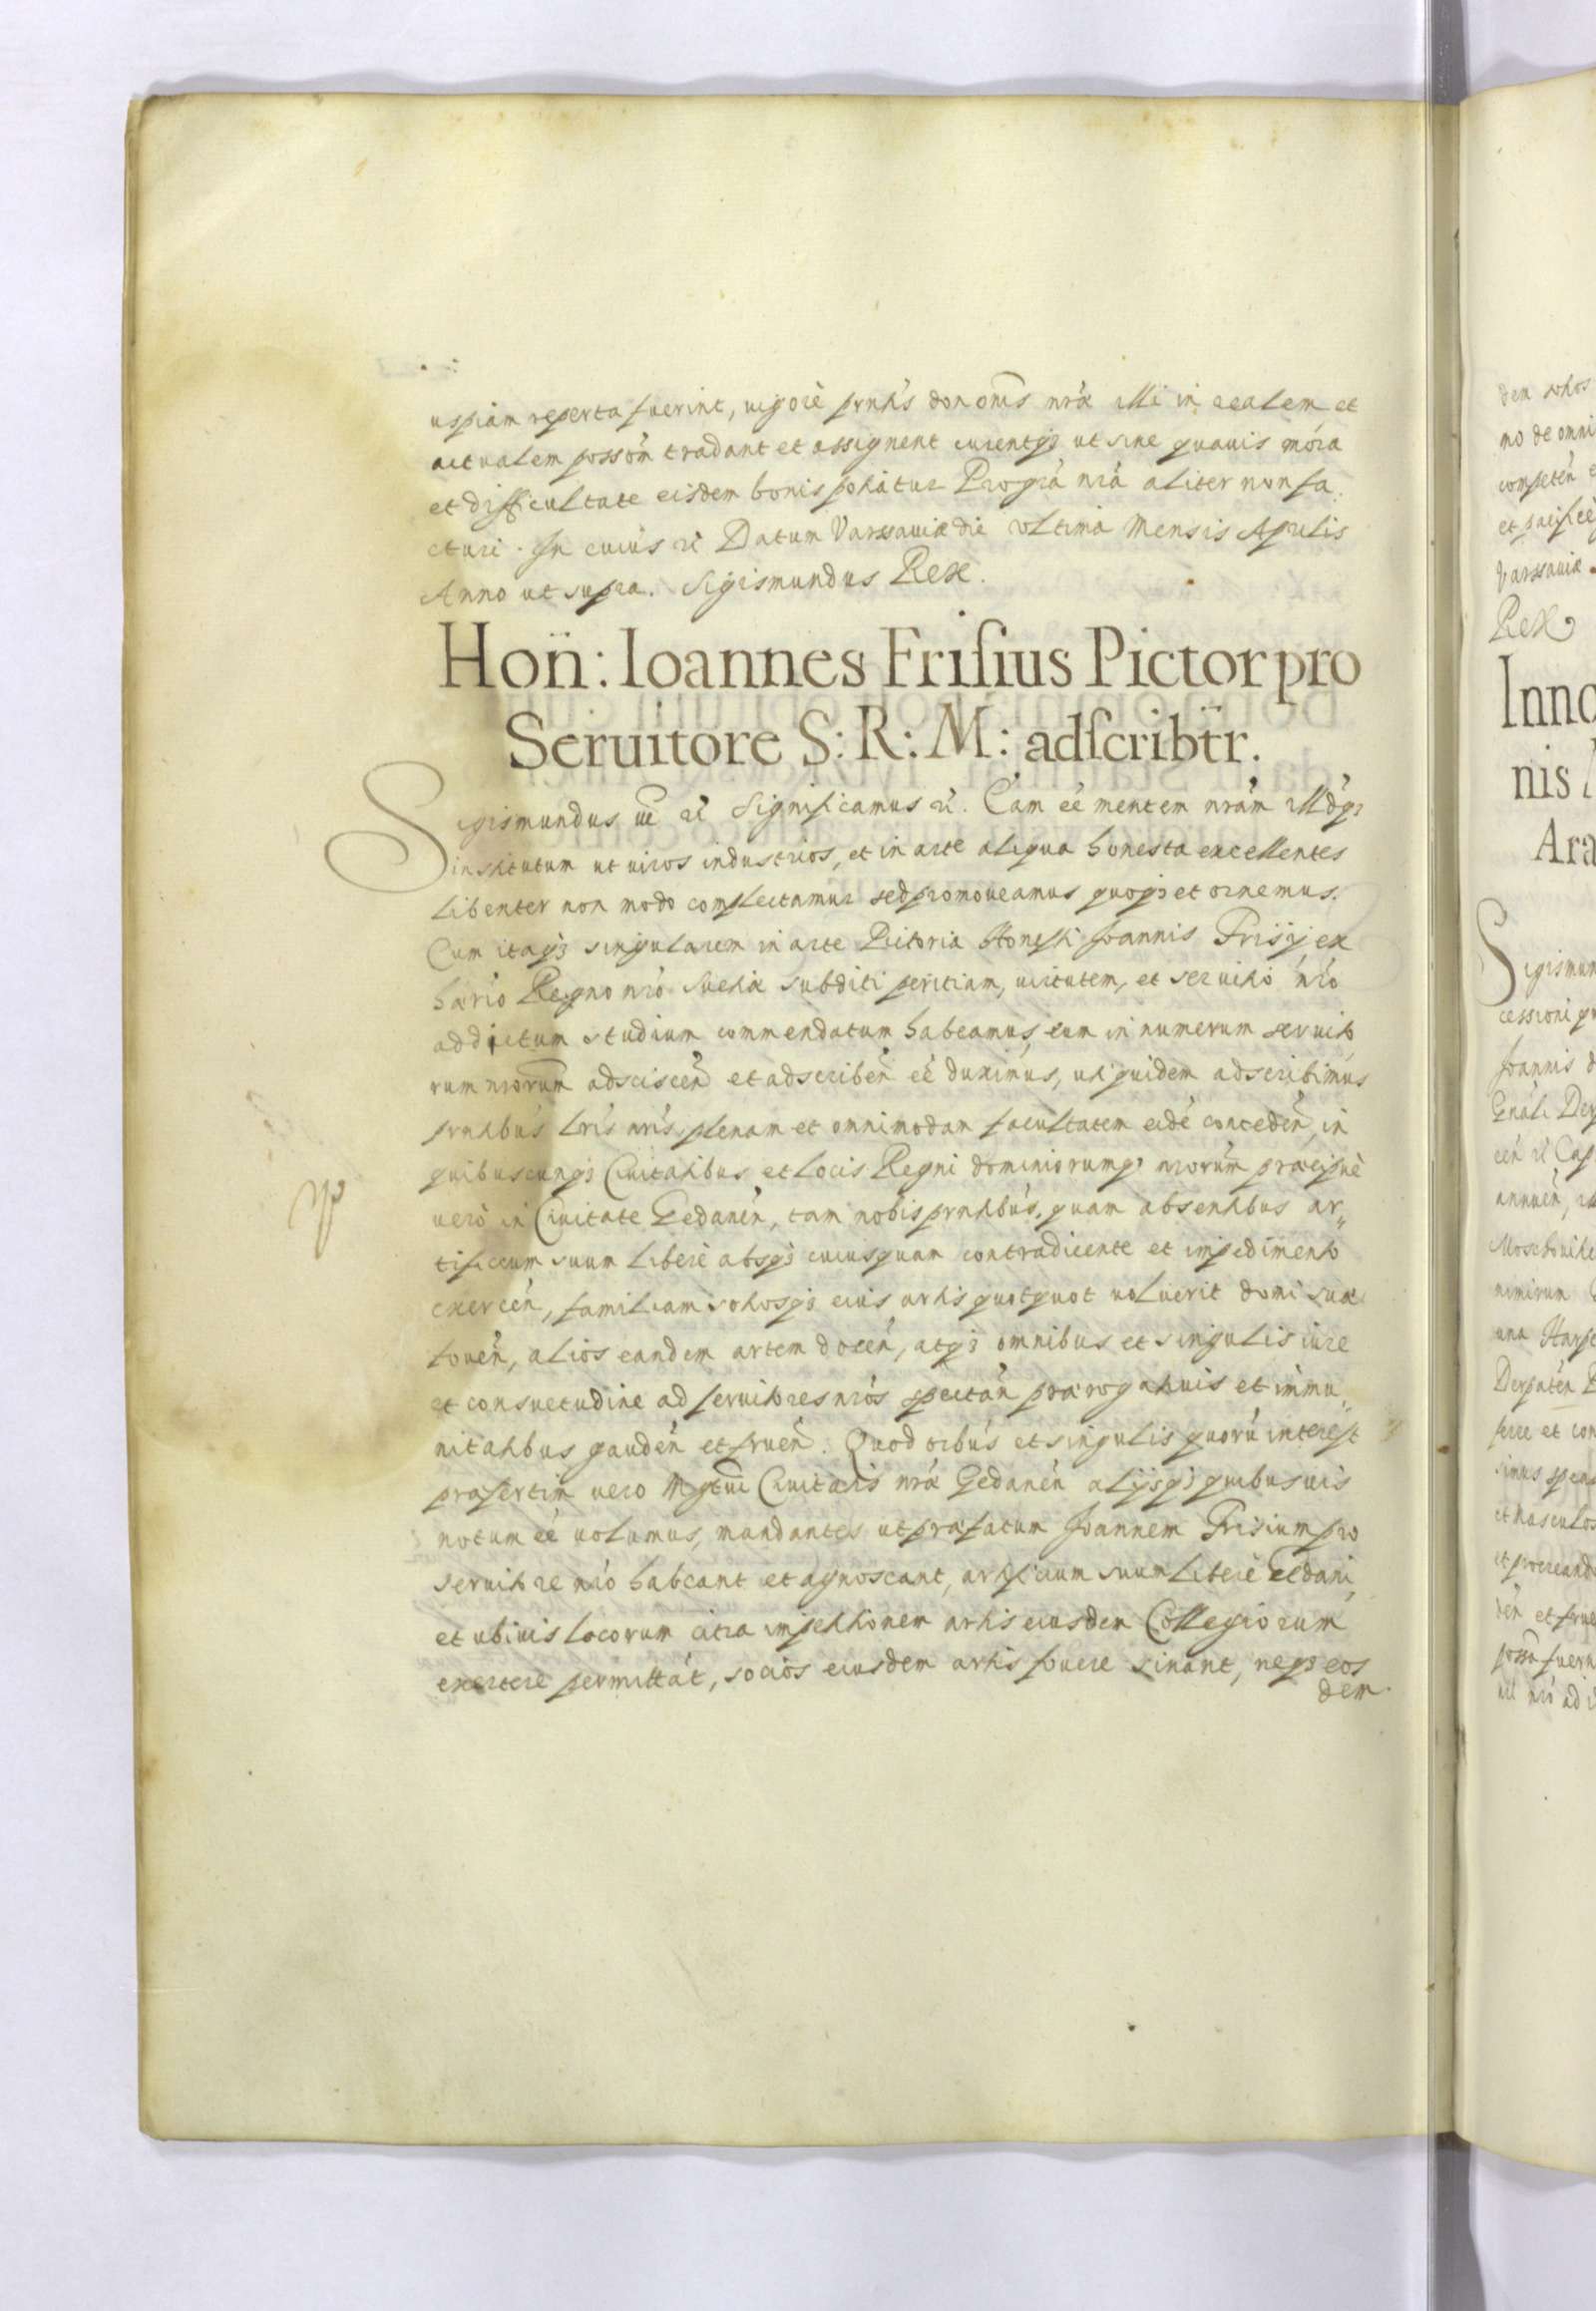 uspiam reperta fuerint, uigore prntis dononis nrae illi in realem et
actualem possom tradant et assignent curentq3 ut sine quauis mora
et difficultate eisdem bonis potiatur Pro gra nra aliter non fa
cturi. In cuius rei Datum Varssauiae die ultima Mensis Aprilis
Anno ut supra. Sigismundus Rex.
Hon̈: Ioannes Friſius Pictor pro
Seruitore S: R: M: adſcribtr.
Sigismundus III etc Significamus etc. Eam eé mentem nram illudq3
institutum ut uiros industrios, et in arte aliqua honesta excellentes
libenter non modo complectamur sed promoueamus quoq3 et ornemus.
Cum itaq3 singularem in arte Pictoria Honesti Joannis Frisij ex
hario Regno nro Suetiae subditi peritiam, uirtutem, et seruitio nro
addictum studium commendatum habeamus, eum in numerum seruito
rum nrorum adsciscen et adscriben eé duximus, uti quidem adscribimus
prntibus lris nris, plenam et omnimodam facultatem eidé conceden, in
quibuscunq3 Ciuitatibus et locis Regni dominiorumq3 nrorum praecipuè
uero in Ciuitate Gedanen, tam nobis prntibus, quam absentibus ar„
tificium suum libere absq3 cuiusquam contradicente et impedimento
exercen, familiam sotiosq3 eius artis quotquot uoluerit domi suae
fouen, alios eandem artem docen, atq3 omnibus et singulis iure
et consuetudine ad seruitores nros spectan praerogatiuis et immu„
nitatibus gauden et fruen. Quod oibus et singulis quorú interest
praesertim uero Mgtui Ciuitatis nrae Gedanen alijsq3 quibusuis
notum eé uolumus, mandantes ut praefatum Joannem Frisium pro
seruitore nro habeant et agnoscant, artificium suum libere Gedani,
et ubiuis locorum citra impetitionem artis eiusdem Collegiorum
exercere permittát, socios eiusdem artis fouere sinant, neq3 eos
dem